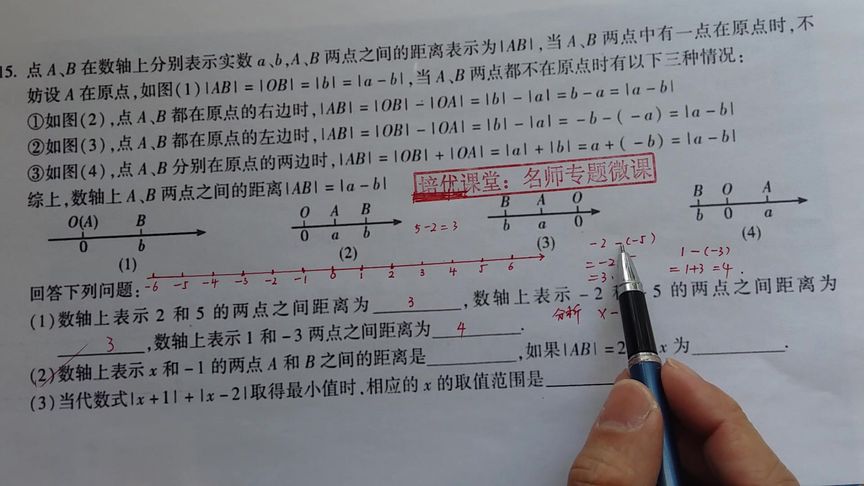 15. 点A、B在数轴上分别表示实数a、b,A、B两点之间的距离表示为|AB|,当A、B两点中有一点在原点时,不
妨设A在原点,如图(1)|AB|=|OB|=|b|=|a-b|,当A、B两点都不在原点时有以下三种情况:
①如图(2),点A、B都在原点的右边时,|AB|=|OB|-|OA|=|b|-|a|=b-a=|a-b|
②如图(3),点A、B都在原点的左边时,|AB|=|OB|-|OA|=|b|-|a|=-b-(-a)=|a-b|
③如图(4),点A、B分别在原点的两边时,|AB|=|OB|+|OA|=|a|+|b|=a+(-b)=|a-b|
综上,数轴上A、B两点之间的距离|AB|=|a-b|
培优课堂：名师专题微课
O(A) B
0 b
(1)
O A B
0 a b
(2)
5-2=3
B A O
b a 0
(3)
B O A
b 0 a
(4)
-2-(-5)
=-2
=3.
1-(-3)
=1+3=4.
-6 -5 -4 -3 -2 -1 0 1 2 3 4 5 6
回答下列问题:
(1)数轴上表示2和5的两点之间距离为 3 ,数轴上表示-2和 5的两点之间距离为
3 ,数轴上表示1和-3两点之间距离为 4 .
分析 x-
(2)数轴上表示x和-1的两点A和B之间的距离是 ,如果|AB|=2 x为 .
(3)当代数式|x+1|+|x-2|取得最小值时,相应的x的取值范围是